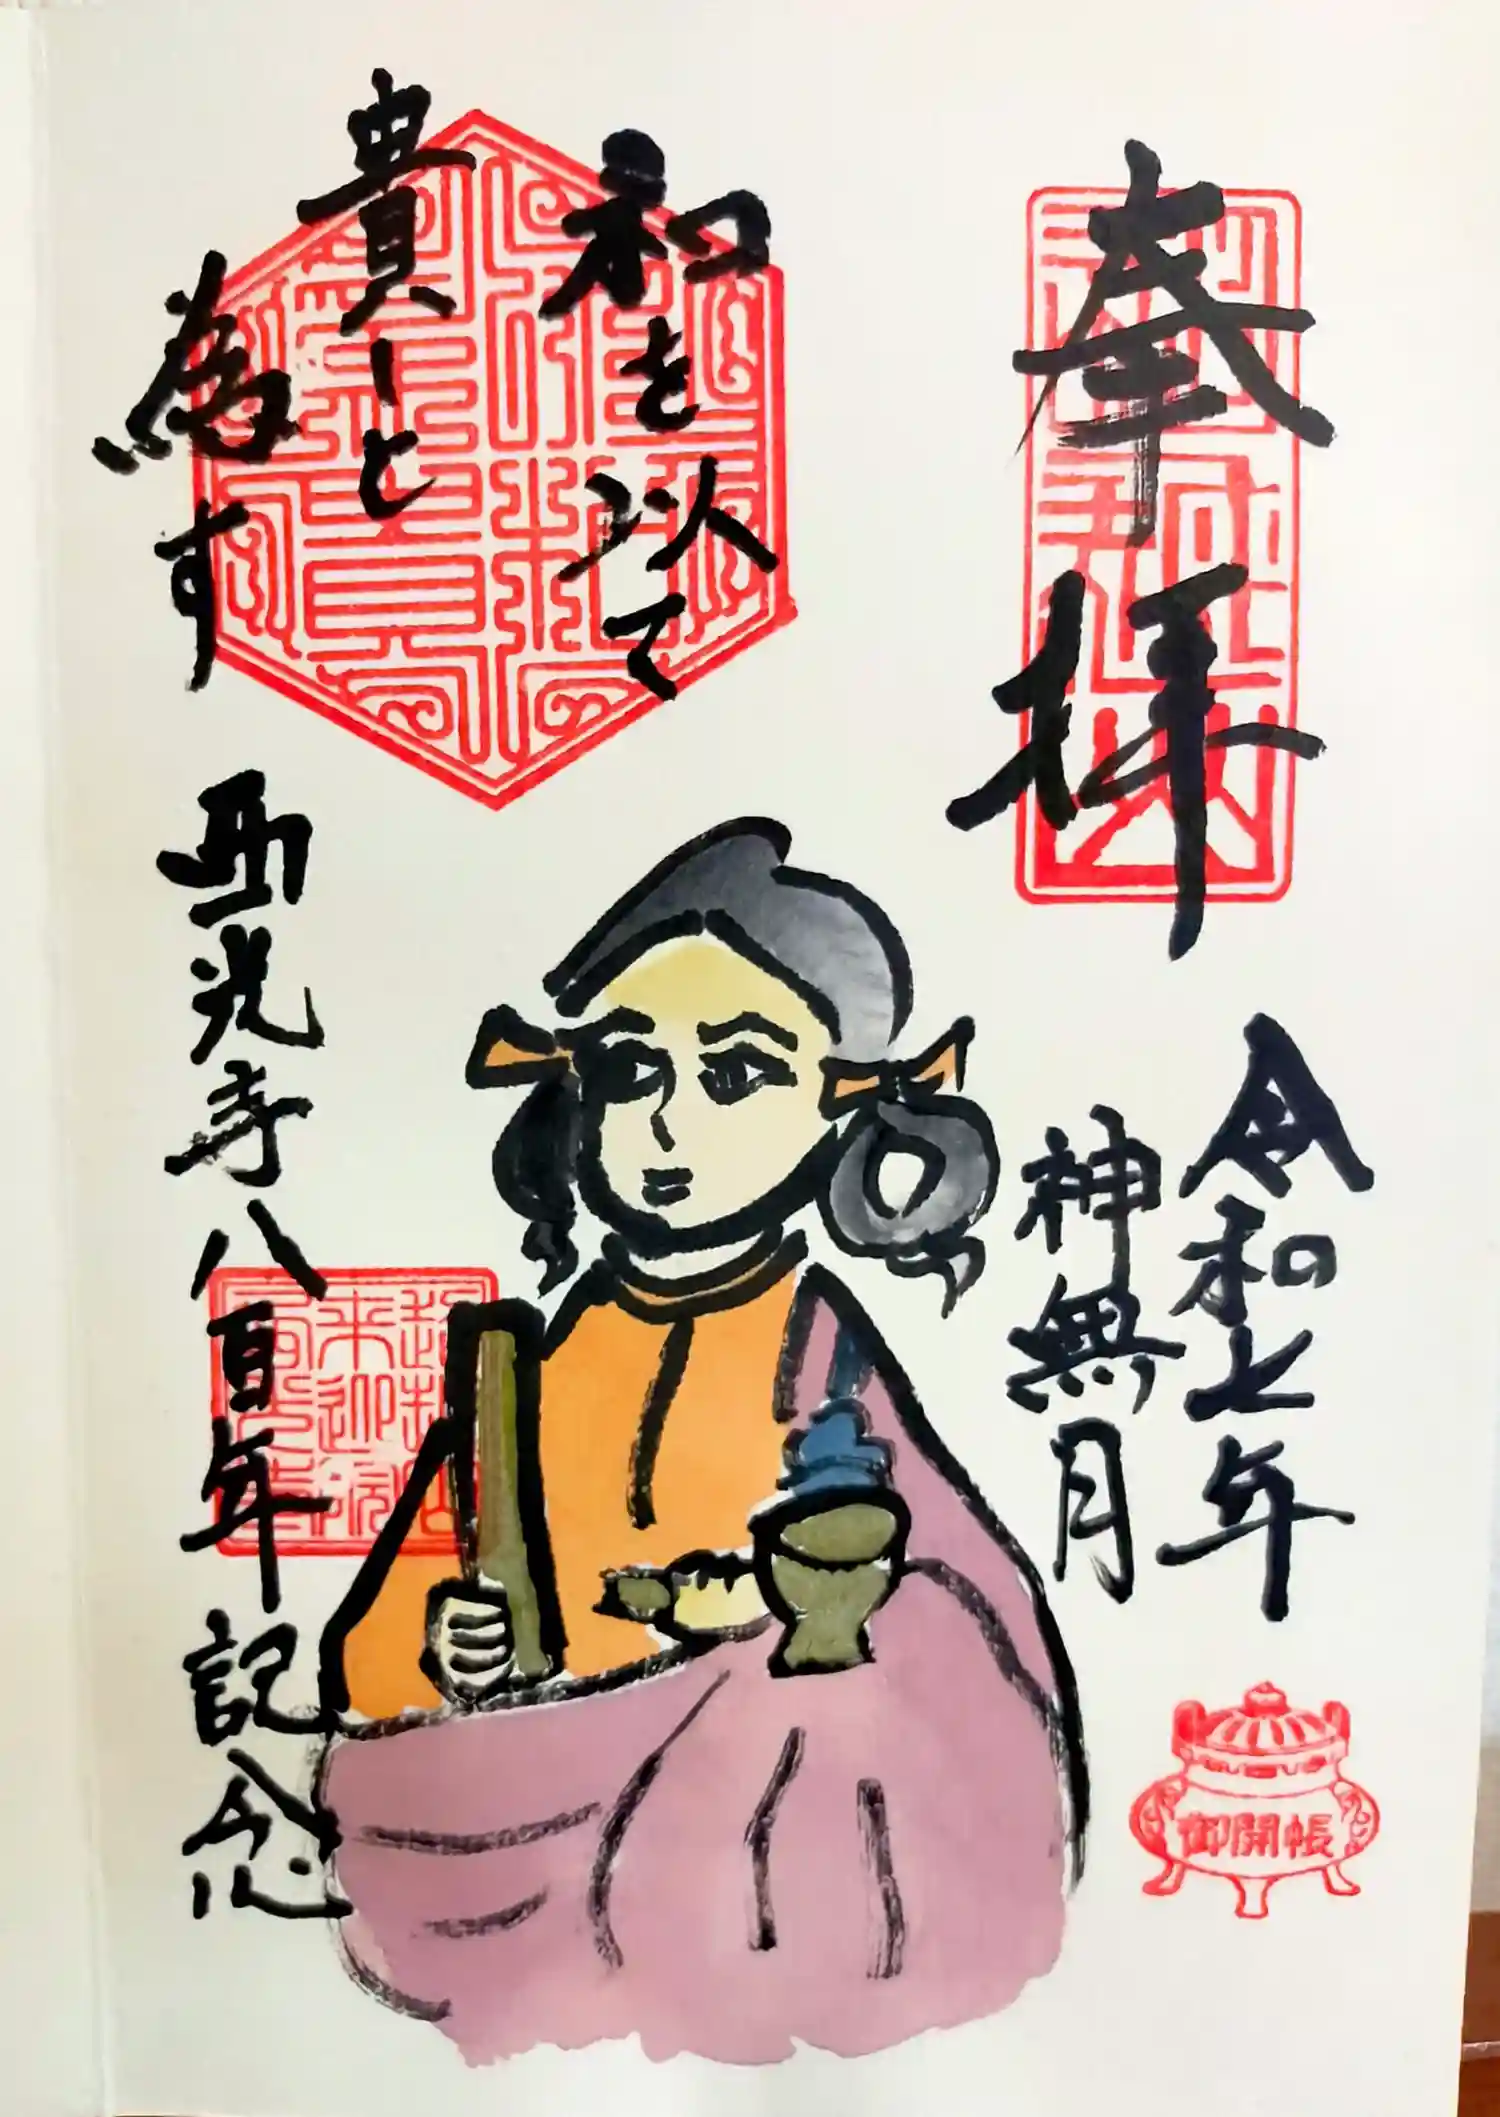 奉拝
令和七年
神無月
和を以て
貴しと
為す
西光寺八百年記念
御開帳